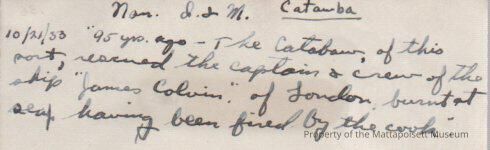 Nan. I. & M. Catawba
10/21/33 "95 yrs. ago - The Catabaw, of this
port, rescued the captain & crew of the
ship "James Colvin," of London, burnt at
sea, having been fired by the cook"
Property of the Mattapoisett Museum